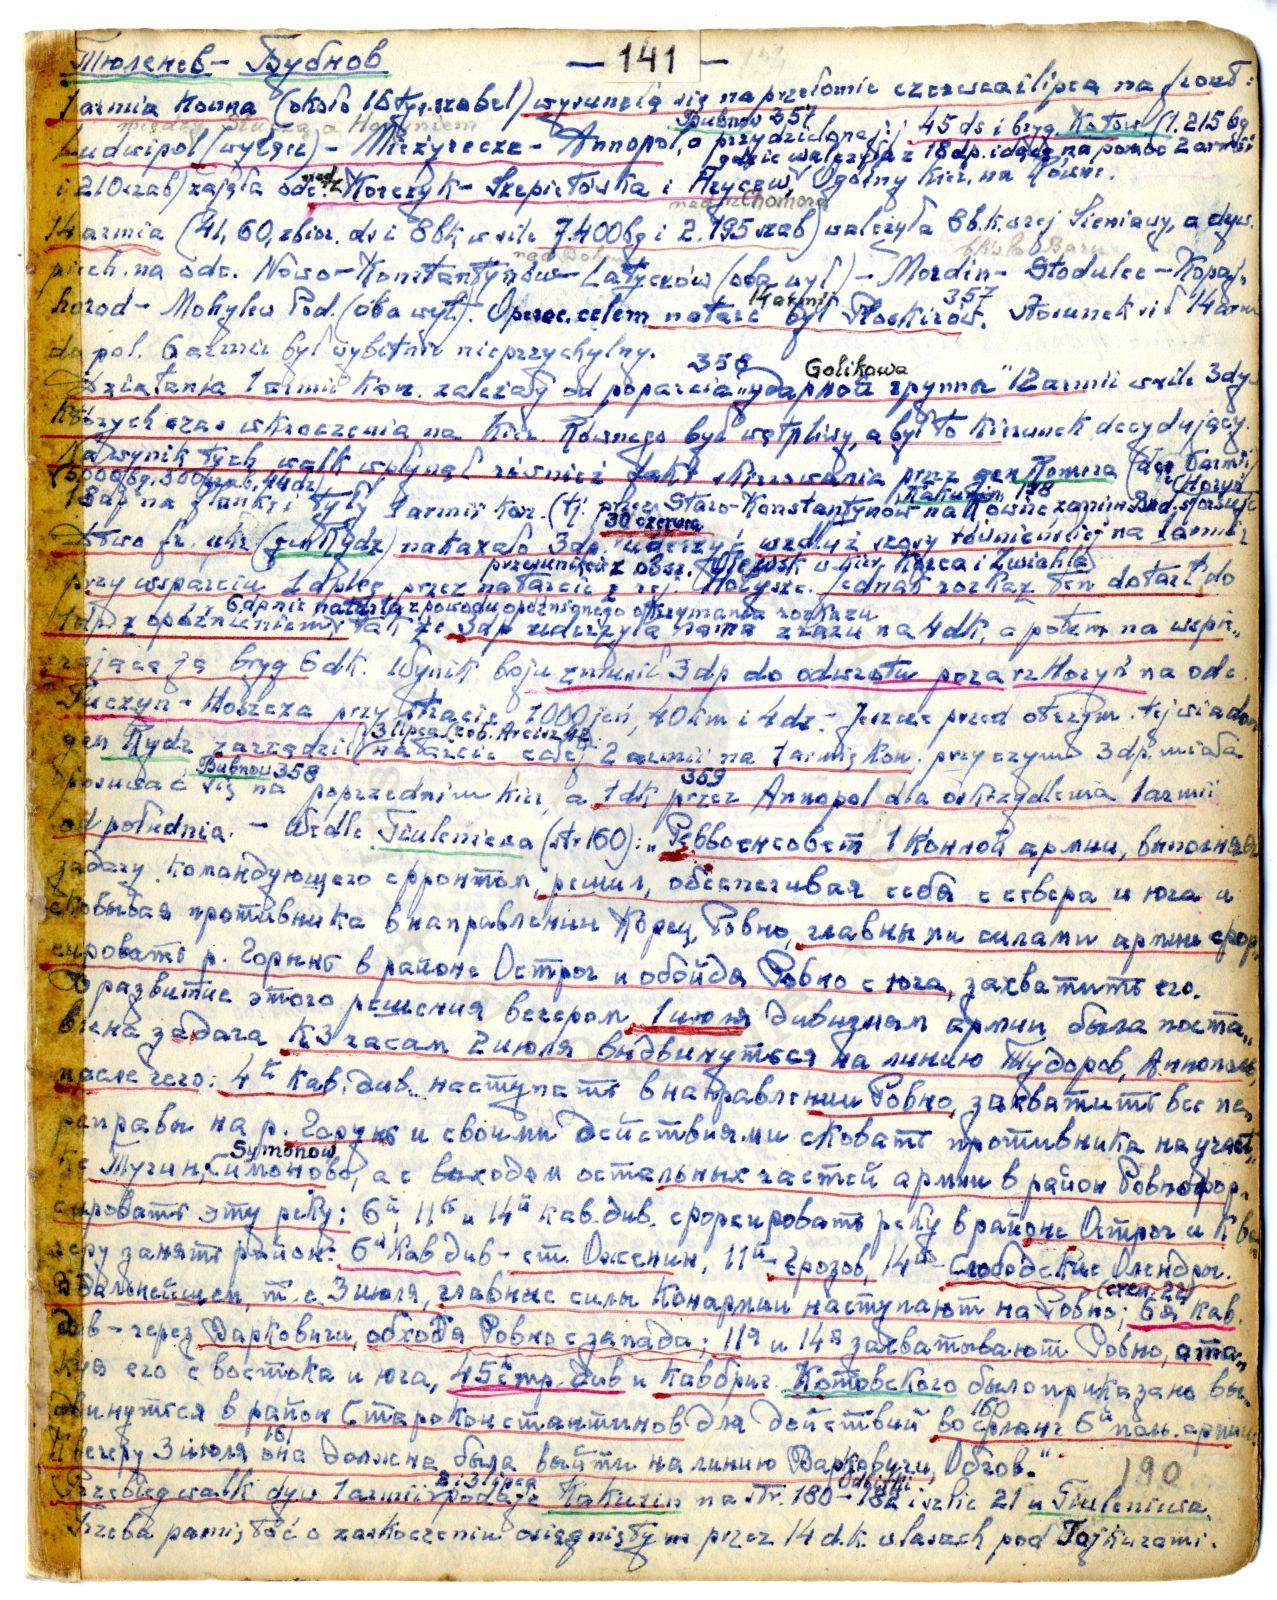 Тюленев – Бубнов – 141 –
1 armia konna (około 16 tys. szabel) wysunęła się na przełomie czerwca i lipca na front:
między Słuczą a Horyniem Bubnow 357
Ludwipol (wyłącz) – Mieżyrecze – Annopol, a przydzielone jej 45 ds i bryg. Kotow. (1.215 bg
gdzie walczyła z 18 dp. idącą na pomoc 2 armii
i 210 szab) zajęła odc. Korczyk – Szepietówka i Hrycew, Ogólny kier. na Równe.
nad rz Chomorą
14 armia (41, 60, zbior. ds i 8 bk w sile 7.400 bg i 2.195 szab) walczyła 8 b.k. w rej Sieniawy, a dyw.
piech. na odc. Nowo-Konstantynów – Latyczów (oba wył) – Mordin – Stodulce – Kopaj-
14 armii 357
horod – Mohylew Pod. (oba wył). Operac. celem natarć był Płoskirów. Stosunek sił 14 arm
do pol. 6 armii był wybitnie nieprzychylny.
358 Golikowa
Działania 1 armii kon. zależały od poparcia „ударной группы" 12 armii w sile 3 dyw
których czas wkroczenia na kier. Równego był wątpliwy, a był to kierunek decydujący.
Na wynik tych walk wpłynął również fakt skierowania przez gen Romera (dcę 6 armii)
(5.000 bg, 500 szab, 44 dz) Kakurin 178 (Horyń
18 dp na flankę i tyły 1 armii kon. (tj. przez Staro-Konstantynów na Równe zanim Bud. sforsuje
30 czerwca
D-two fr. ukr (gen Rydz) nakazało 3 dp. uderzyć wzdłuż szosy rówieńskiej na 1 armię
przesunięcu z obsz. Olewsk w kier. Korca i Zwiahla)
przy wsparciu 1 dp leg. przez natarcie z rej. Hołysze. Jednak rozkaz ten dotarł do
6 dp nie natarła z powodu opóźnionego otrzymania rozkazu
1 dp z opóźnieniem, tak że 3 dp uderzyła sama zrazu na 4 dk, a potem na wspie-
rającą ją bryg 6 dk. Wynik boju zmusił 3 dp do odwrotu poza rz Horyń na odc.
Tuczyn – Hoszcza przy stracie 1000 jeń, 40 km i 4 dz. – Jeszcze przed otrzym. tej wiadom
3 lipca
gen Rydz zarządził natarcie całej 2 armii na 1 armię kon. przy czym 3 dp. miała
Bubnow 358 359
posuwać się na poprzednim kier, a 1 dk przez Annopol dla oskrzydlenia 1 armii
od południa. – Wedle Tiuleniewa (str 160): „Реввоенсовет 1 Конной армии, выполняя
задачу командующего фронтом, решил, обеспечивая себя с севера и юга и
сковывая противника в направлении Корец, Ровно, главными силами армии фор-
сировать р. Горынь в районе Острог и обойдя Ровно с юга, захватить его.
В развитие этого решения вечером 1 июля дивизиям армии была поста-
влена задача к 3 часам 2 июля выдвинуться на линию Тудоров, Аннополь,
после чего: 4ая кав. див. наступать в направлении Ровно, захватить все пе-
реправы на р. Горынь и своими действиями сковать противника на участ-
Symonow
ке Тучин, Симоново, а с выходом остальных частей армии в район Ровно фор-
сировать эту реку; 6й, 11й и 14й кав. див. форсировать реку в районе Острог и к ве-
черу занять район: 6я кав див – ст. Оженин, 11я – Брозов, 14я – Слободские Олендры.
(стр. 22)
В дальнейшем, т. е. 3 июля, главные силы Конармии наступают на Ровно; 6я кав.
див – через Варковичи, обходя Ровно с запада; 11я и 14я захватывают Ровно, ата-
куя его с востока и юга, 45 стр. див и кавбриг. Котовского было приказано вы-
160
двинуться в район Староконстантинов для действий во фланг 6й польск. армии
161
К вечеру 3 июля она должна была выйти на линию Варковичи, Обгов."
2 i 3 lipca 190
Przebieg walk dyw 1 armii podaje Kakurin na str. 180–182 i szkic 21 u Tiuleniewa.
Trzeba pamiętać o zaskoczeniu osiągniętym przez 14 d.k. w lasach pod Tajkurami.